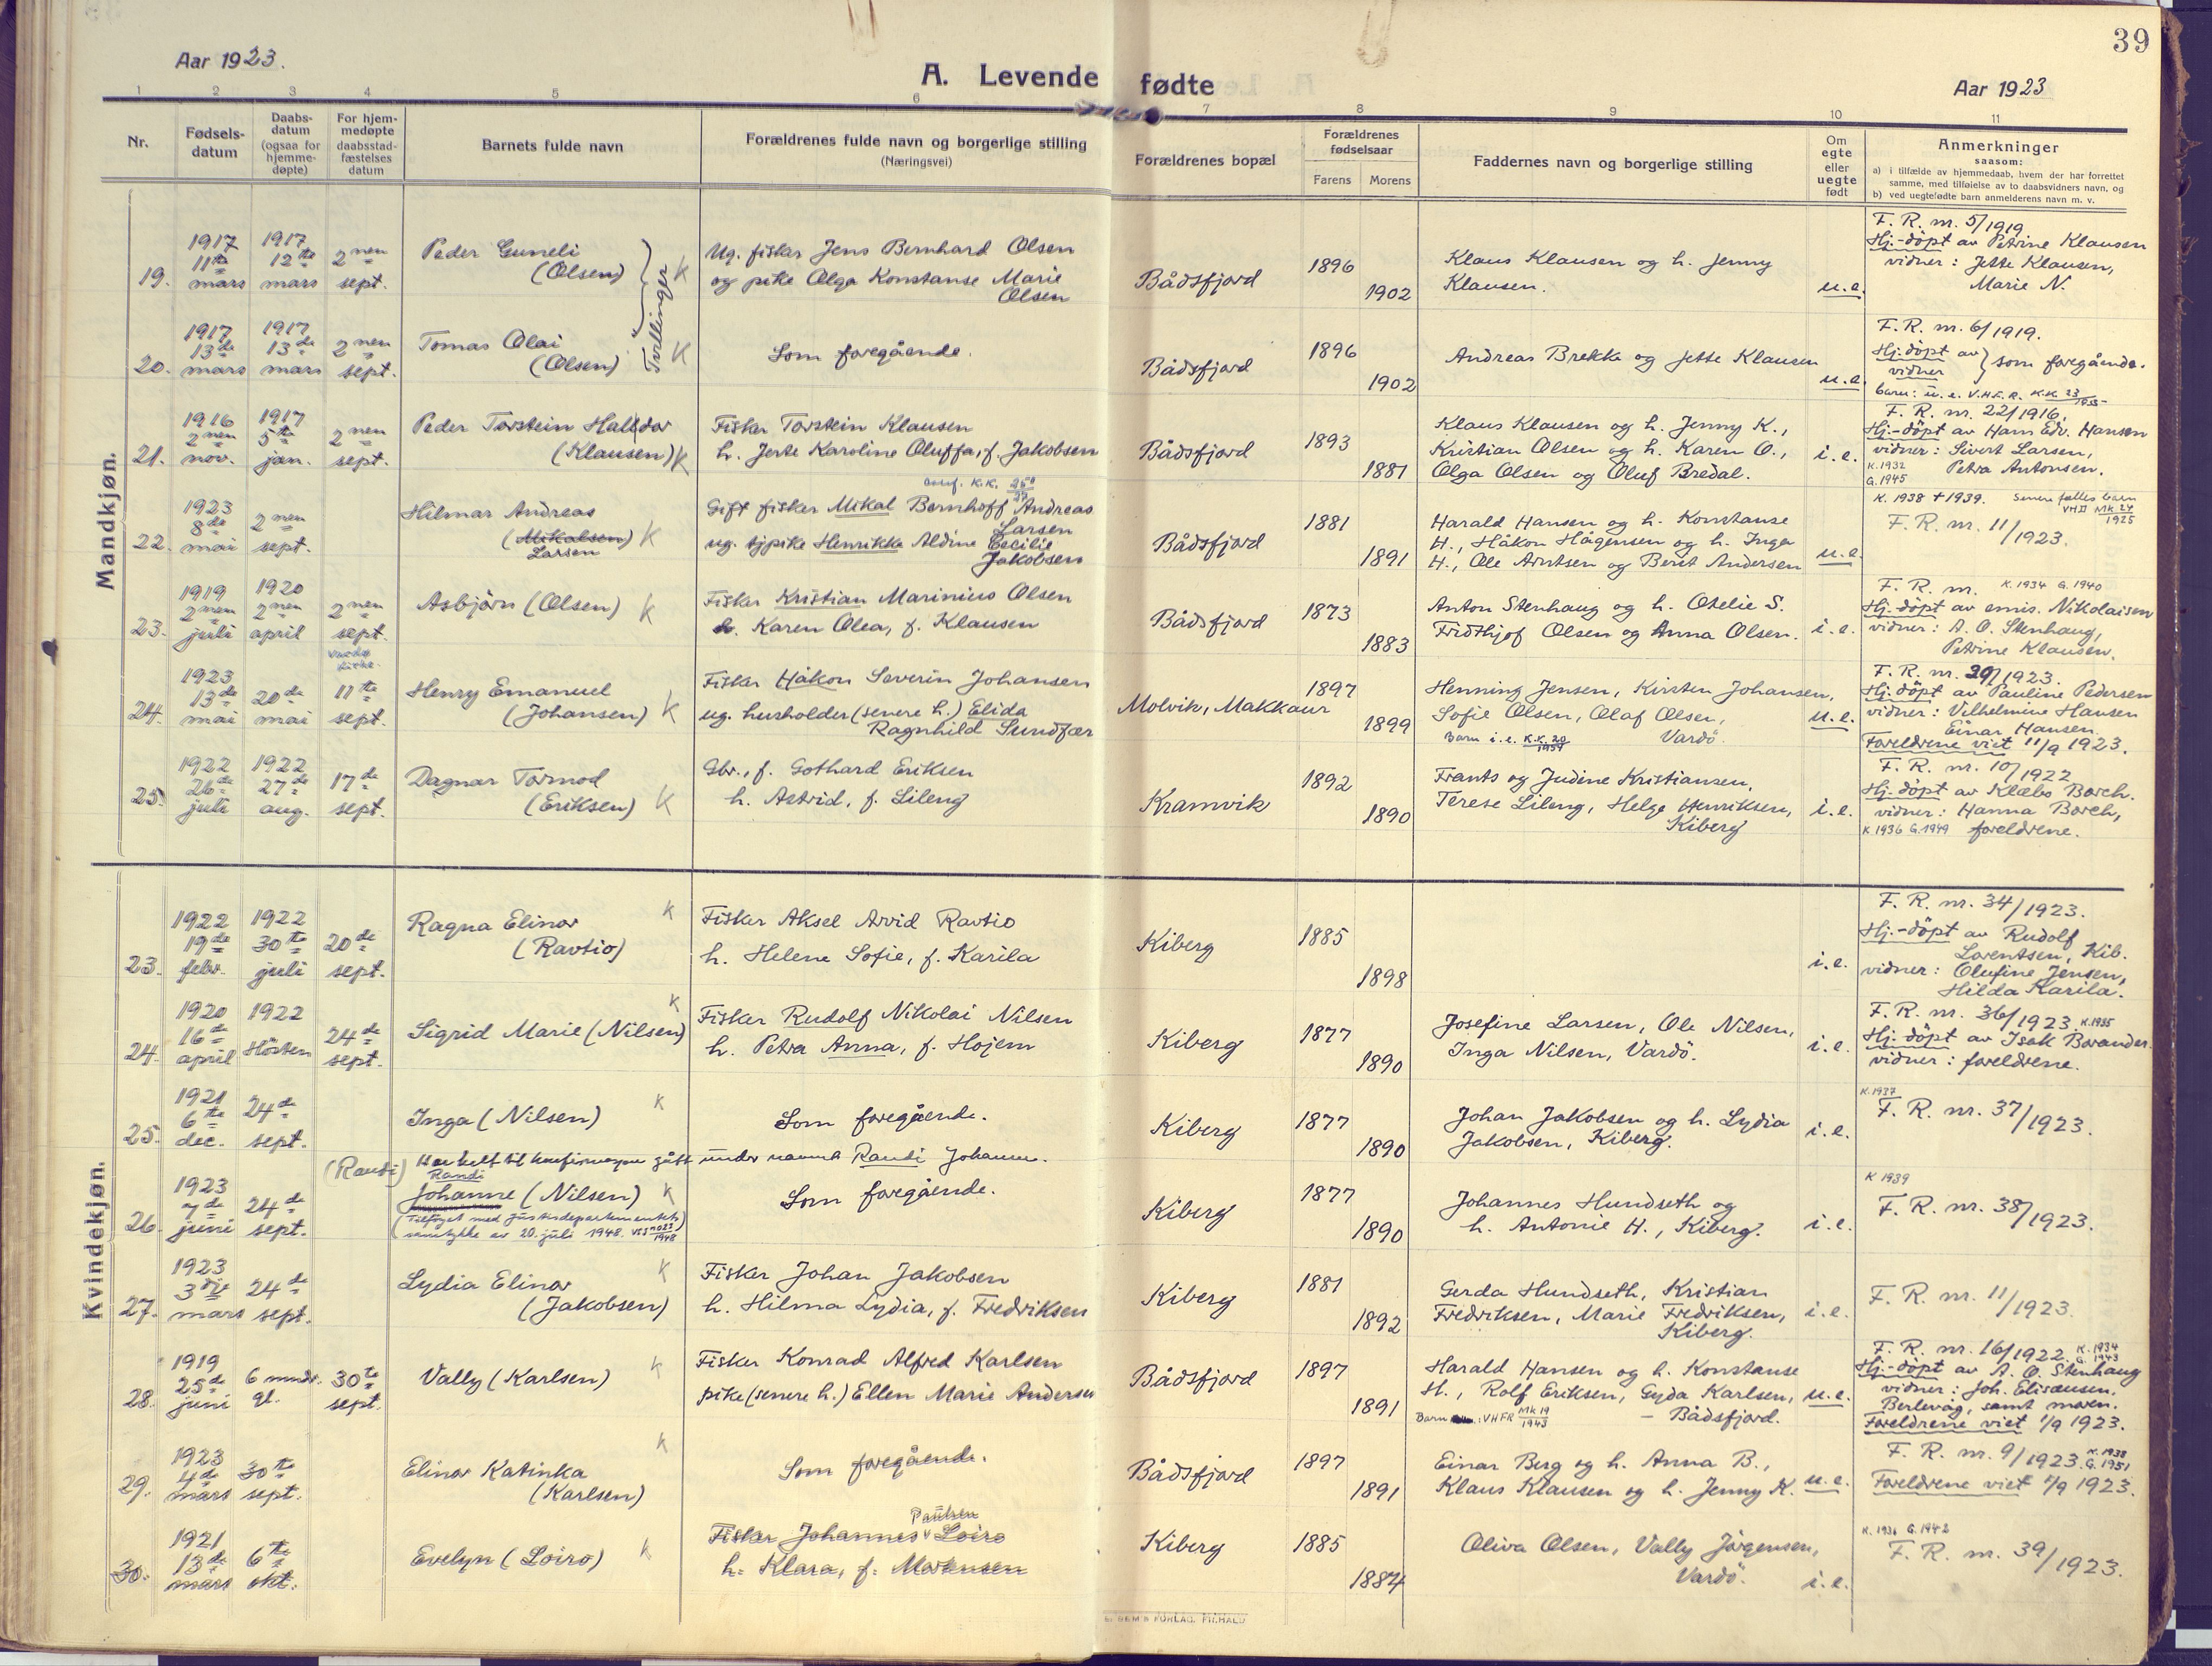 39
Aar 1923.
A. Levende fødte
Aar 1923
1 2 3 4 5 6 7 8 9 10 11
Nr.
Fødsels-
datum
Daabs-
datum
(ogsaa for
hjemme-
døpte)
For hjem-
medøpte
daabsstad-
fæstelses
datum
Barnets fulde navn
Forældrenes fulde navn og borgerlige stilling
(Næringsvei)
Forældrenes bopæl
Forældrenes
fødselsaar
Farens Morens
Faddernes navn og borgerlige stilling
Om
egte
eller
uegte
født
Anmerkninger
saasom:
a) i tilfælde av hjemmedaab, hvem der har forrettet
samme, med tilføielse av to daabsvidners navn, og
b) ved uegtefødte barn anmelderens navn m. v.
Mandkjøn.
19.
1917
11te
mars
1917
12te
mars
2nen
sept.
Peder Guneli
(Olsen)
Tvillinger
K
Ug. fisker Jens Bernhard Olsen
og pike Olga Konstanse Marie
Olsen
Bådsfjord
1896
1902
Klaus Klausen og h. Jenny
Klausen.
u.e.
F. R. nr. 5/1919
Hj.-döpt av Petrine Klausen
vidner: Jette Klausen,
Marie N.
20.
1917
13de
mars
1917
13de
mars
2nen
sept.
Tomas Olai
(Olsen)
K
Som foregående.
Bådsfjord
1896
1902
Andreas Brekke og Jette Klausen
u.e.
F. R. nr. 6/1919.
Hj.döpt av
vidner } som foregående.
barn: u. e. V.H.F.R. K.K. 23/1935
21.
1916
2nen
nov.
1917
5te
jan.
2nen
sept.
Peder Torstein Halldor
(Klausen) K
Fisker Torstein Klausen
h. Jerte Karoline Oluffa, f. Jakobsen
Bådsfjord
1893
1881
Klaus Klausen og h. Jenny K.,
Kristian Olsen og h. Karen O.,
Olga Olsen og Oluf Bredal.
i.e.
F. R. nr. 22/1916,
Hj.-döpt av Ham Edv. Hansen
vidner: Sivert Larsen,
Petra Antonsen.
K.1932
G.1945
22.
1923
8de
mai
2nen
sept.
Hilmar Andreas
(Mikalsen)
Larsen
K
Gift fisker Mikal Bernhoff Andreas
Larsen
ug. tjpike Henrikke Aldine Cecilie
Jakobsen
Bådsfjord
1881
1891
Harald Hansen og h. Konstanse
H., Håkon Hågensen og h. Inga
H., Ole Arntsen og Beret Andersen
u.e.
K. 1938 + 1939. senere fælles barn
VHII Mk.24/1925
F. R. nr. 11/1923.
23.
1919
2nen
juli
1920
2nen
april
2nen
sept.
Asbjörn (Olsen) K
Fisker Kristian Marinius Olsen
h. Karen Olea, f. Klausen
Bådsfjord
1873
1883
Anton Stenhaug og h. Otelie S.
Fridthjof Olsen og Anna Olsen.
i.e.
F. R. nr. K.1934 G.1940
Hj.-döpt av emis. Nikolaisen
vidner: A. O. Stenhaug,
Petrine Klausen.
24.
1923
13de
mai
20de
mai
Vardø
kirke.
11te
sept.
Henry Emanuel
(Johansen) K
Fisker Håkon Severin Johansen
ug. husholder (senere h.) Elida
Ragnhild Sundfær
Molvik, Makkaur
1897
1899
Henning Jensen, Kirsten Johansen,
Sofie Olsen, Olaf Olsen,
Vardö.
Barn i.e. K.K. 20/1957
u.e.
F. R. nr. 30/1923.
Hj.döpt av Pauline Pedersen
vidner: Vilhelmine Hansen
Einar Hansen.
Foreldrene viet 11/9 1923.
25.
1922
26de
juli
1922
27de
aug.
17de
sept.
Dagnar Tormod
(Eriksen) K
Gbr., f. Gothard Eriksen
h. Astrid, f. Lileng
Kramvik
1892
1890
Frants og Judine Kristiansen,
Terese Lileng, Helge Henriksen,
Kiberg
i.e.
F. R. nr. 10/1922
Hj.döpt av Klæbo Borch.
vidner: Hanna Borch,
foreldrene.
K.1936 G.1949
Kvindekjøn.
23.
1922
19de
febr.
1922
30te
juli
20de
sept.
Ragna Elinor
(Ravtio)
K
Fisker Aksel Arvid Ravtio
h. Helene Sofie, f. Karila
Kiberg
1885
1898
i.e.
F. R. nr. 34/1923.
Hj.-döpt av Rudolf
Lorentsen, Kib.
vidner: Olufine Jensen,
Hilda Karila.
24.
1920
16de
april
1922
Hösten
24de
sept.
Sigrid Marie (Nilsen)
K
Fisker Rudolf Nikolai Nilsen
h. Petra Anna, f. Hojem
Kiberg
1877
1890
Josefine Larsen, Ole Nilsen,
Inga Nilsen, Vardö.
i.e.
F. R. nr. 36/1923. K.1935
Hj.döpt av Isak Borander.
vidner: foreldrene.
25.
1921
6te
dec.
24de
sept.
Inga (Nilsen)
K
Som foregående.
Kiberg
1877
1890
Johan Jakobsen og h. Lydia
Jakobsen, Kiberg.
i.e.
K.1937
F. R. nr. 37/1923.
26.
(Randi) Har helt til konfirmasjon gått under navnet Randi Johanne.
1923
7de
juni
24de
sept.
Randi
Johanne (Nilsen) K
(Tilføyet med Justisdepartementets
samtykke av 20. juli 1948.
Som foregående.
Kiberg
1877
1890
Johannes Hundseth og
h. Antonie H., Kiberg.
i.e.
K 1939
F. R. nr. 38/1923.
27.
1923
3dje
mars
24de
sept.
Lydia Elinor
(Jakobsen)
K
Fisker Johan Jakobsen
h. Hilma Lydia, f. Fredriksen
Kiberg
1881
1892
Gerda Hundseth, Kristian
Fredriksen, Marie Fredriksen,
Kiberg.
i.e.
F. R. nr. 11/1923.
28.
1919
25de
juni
6 mndr.
gl.
30te
sept.
Vally (Karlsen)
K
Fisker Konrad Alfred Karlsen
pike (senere h.) Ellen Marie Andersen
Bådsfjord
1897
1891
Harald Hansen og h. Konstanse
H., Rolf Eriksen, Gyda Karlsen,
– Bådsfjord.
Barn : VHFR Mk 19/1943
u.e.
F. R. nr. 16/1922. K.1934
G.1943
Hj.-döpt av A. O. Stenhaug
vidner: Joh. Elisæusen.
Berlevåg, samt moren.
Foreldrene viet 1/9 1923.
29.
1923
4de
mars
30te
sept.
Elinor Katinka
(Karlsen)
K
Som foregående.
Bådsfjord
1897
1891
Einar Berg og h. Anna B.,
Klaus Klausen og h. Jenny K.
u.e.
F. R. nr. 9/1923. K.1938
G.1951
Foreldrene viet 1/9 1923.
30.
1921
13de
mars
6te
okt.
Evelyn (Loiro)
K
Paulsen
Fisker Johannes Loiro
h. Klara, f. Mortensen
Kiberg
1885
1884
Oliva Olsen, Vally Jörgensen,
Vardö.
i.e.
K. 1936 G. 1942
F. R. nr. 39/1923.